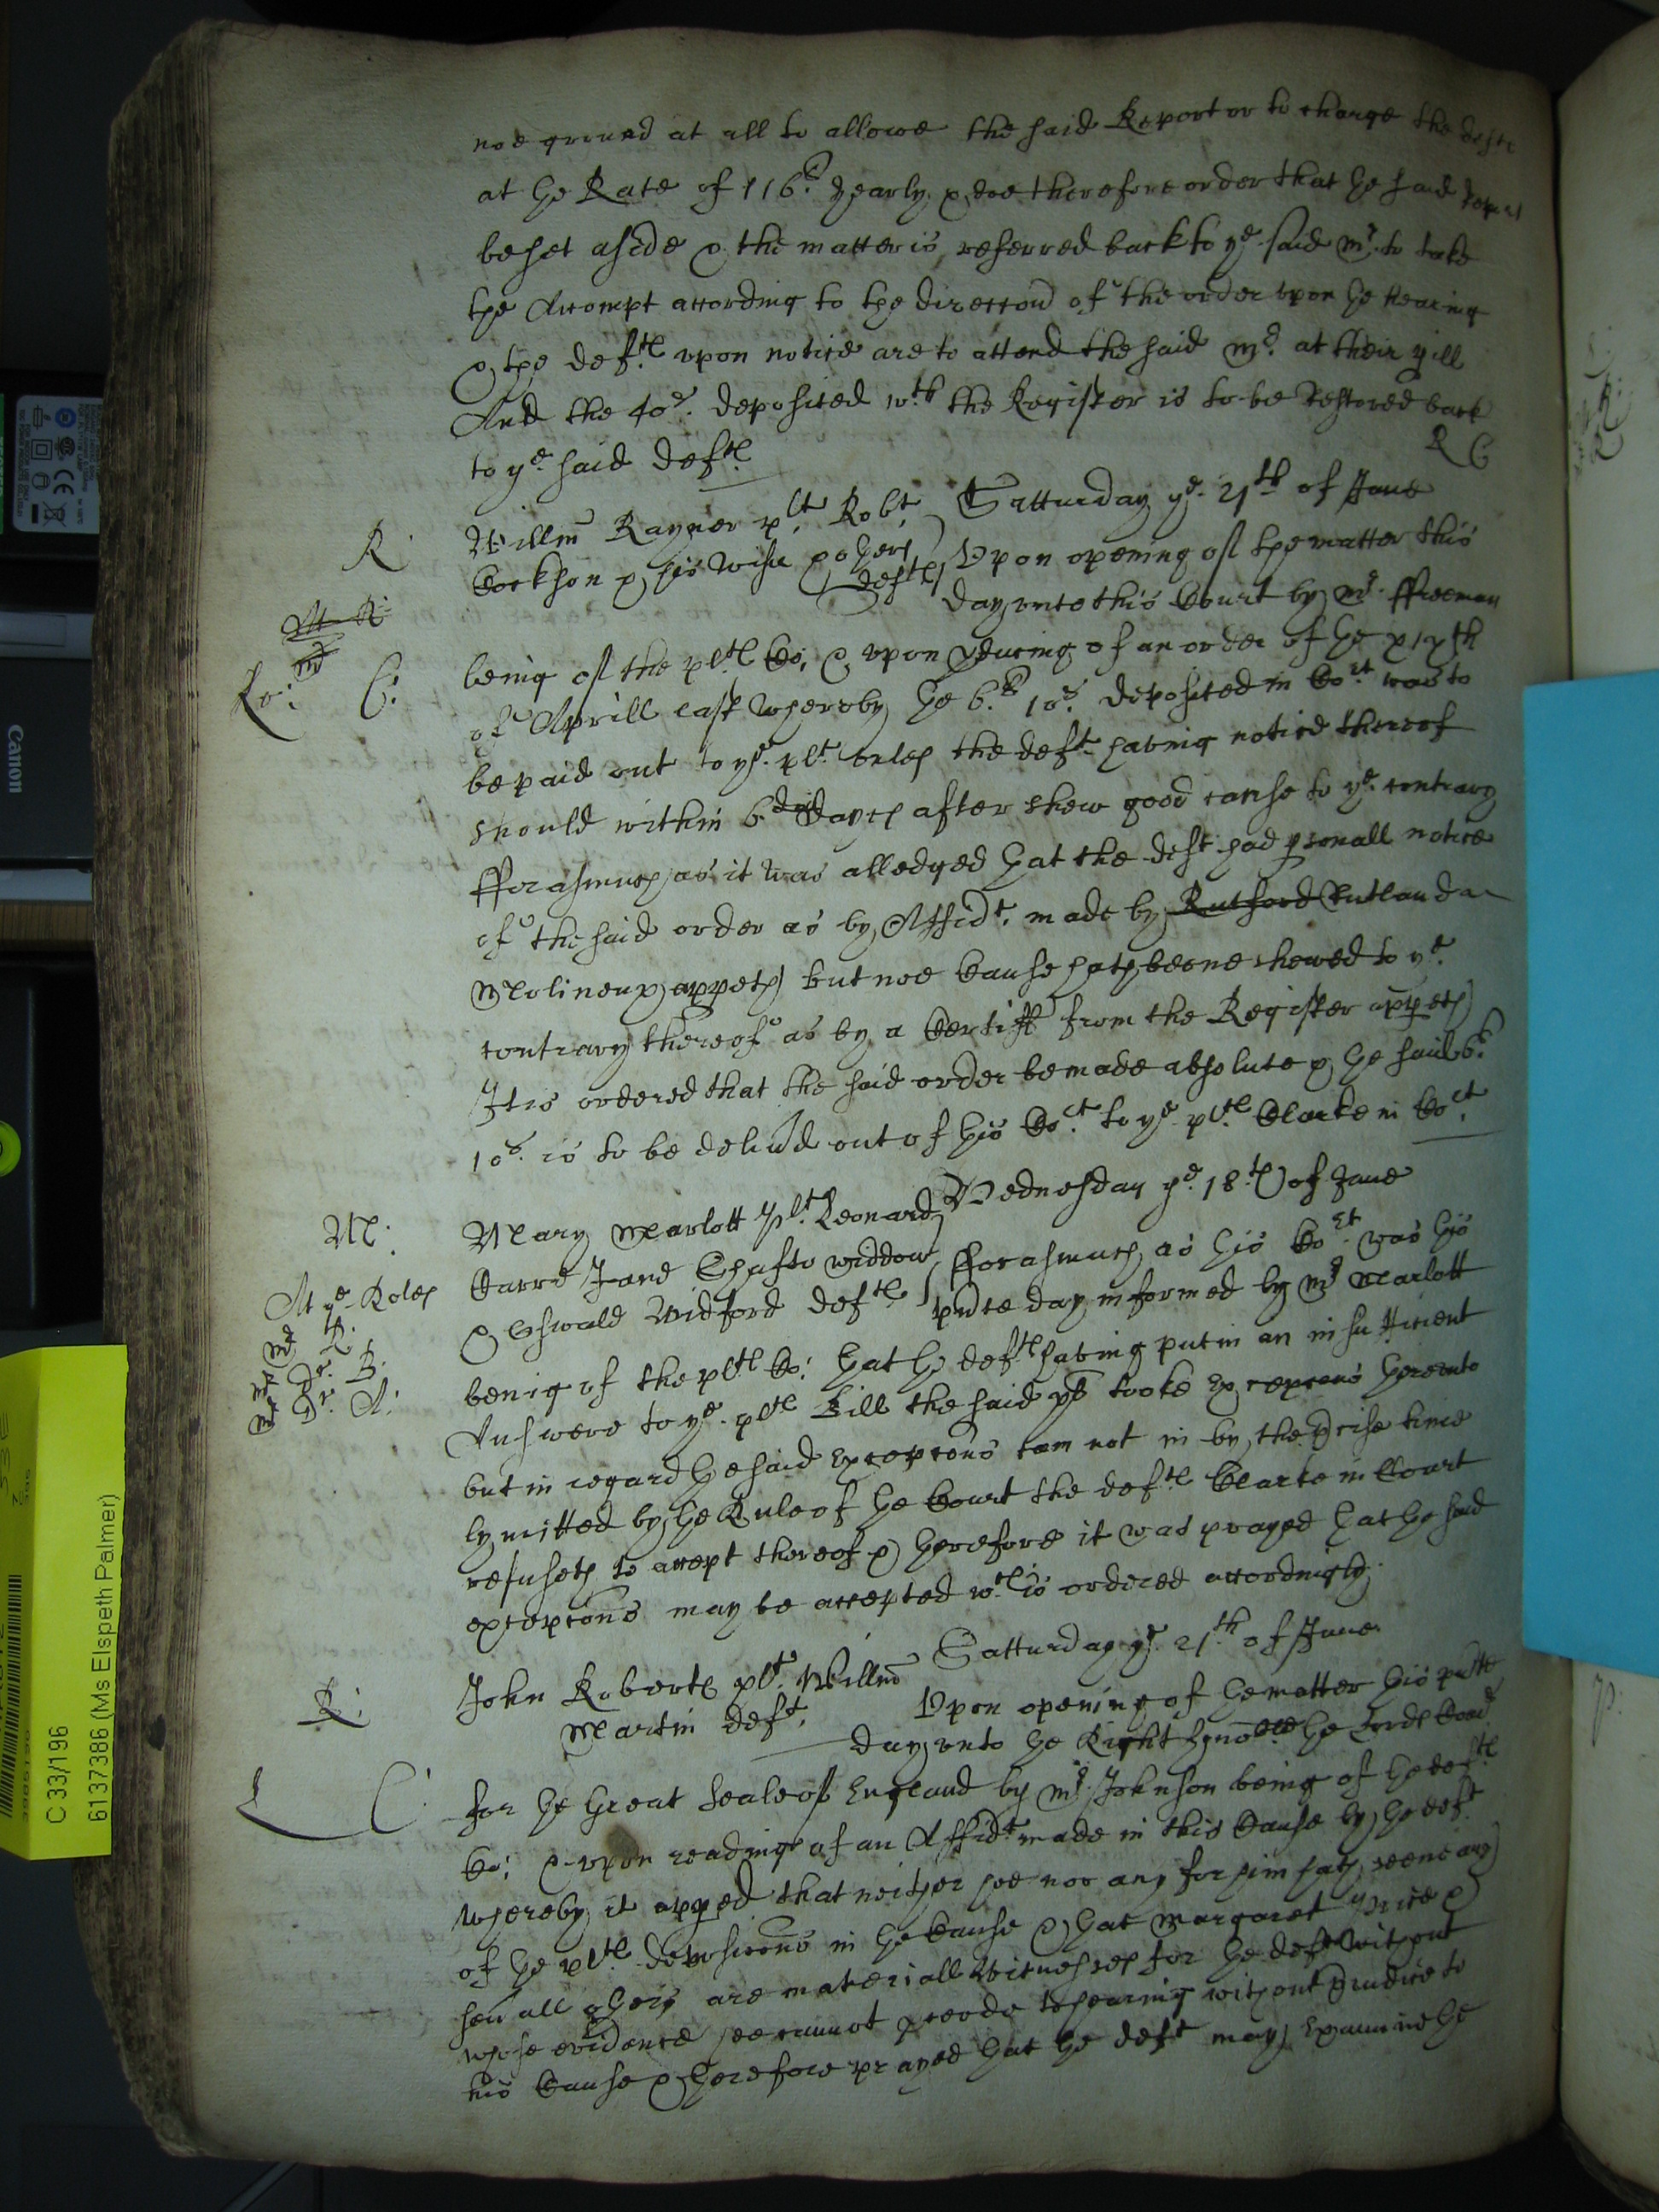 noe ground at all to allowe the said Report or to charge the deftes
at the Rate of 116£ yearly & doe therefore order that the said Report
be set aside & the matter is referred back to ye said Mr. to take
the Accompt according to the direccon of the order upon the hearing
& the deftes upon notice are to attend the said Mr. at their pill
And the 40s. deposited wth the Register is to be restored back
to ye said deftes
R C
R
Willm Rayner plt Robt
Cockson & his wife & others
deftes
Satturday ye 21th of June
Upon opening of the matter this
day unto this Court by Mr. ffreeman
Ro:
C:
being of the pltes Co: & upon pducing of an order of the xixth
of Aprill last whereby the 6£ 10s. deposited in Cort was to
be paid out to ye plt unles the deft having notice thereof
should within 6 dayes after shew good cause to ye contrary
fforasmuch as it was alledged that the deft had psonall notice
of the said order as by Affidt. made by Rutford Rutlanda
Molineux appeth but noe Cause hath beene shewed to ye
contrary thereof as by a Certifft from the Register appeth
It is ordered that the said order be made absolute & the said 6£
10s. is to be delivd out of this Cort to ye pltes Clarke in Cort
M:
Mary Marlott plt Leonard
Carre Jane Shafto widdow
& Oswald Widford deftes
Wednesday ye 18th of June
fforasmuch as this Cort was this
pnte day informed by Mr Marlott
At ye Roles
Mr R.
Mr Dr. B.
Mr Dr. A:
being of the pltes Co: that the deftes having put in an insufficient
Answere to ye pltes Bill the said plt tooke excepcons thereunto
but in regard the said excepcons cam not in by the prcise time
lymitted by the Rule of the Court the deftes Clarke in Court
refuseth to accept thereof & therefore it was prayed that the said
excepcons may be accepted wch is ordered accordingly
R:
John Robertes plt. Willm
Martin deft.
Satturday ye 21th of June
Upon opening of the matter this pnte
day unto the Right honoble the Lords Comrs
C:
for the Great Seale of England by Mr. Johnson being of the deftes
Co: & upon reading of an Affidt made in this Cause by the deft
whereby it apped that neither hee nor any for him hath seene any
of the pltes deposicons in the Cause & that Margaret Price &
sevall others are materiall Witnesses for the deft without
whose evidence hee cannot pceede to hearing without prudice to
his Cause & therefore prayed that the deft may examine the
Canon
C 33/196
6137386 (Ms Elspeth Palmer)